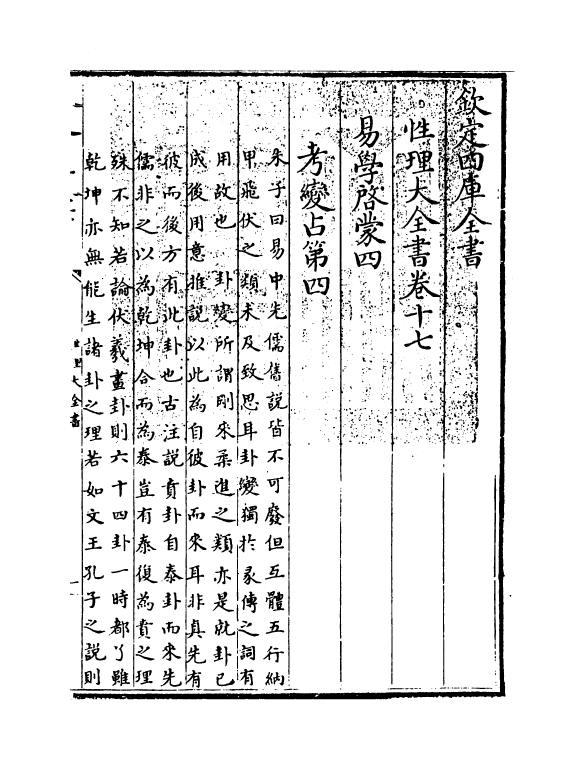 欽定四庫全書
性理大全書卷十七
易學啓蒙四
考變占第四
朱子曰易中先儒舊說皆不可廢但互體五行納
甲飛伏之類未及致思耳卦變獨於彖傳之詞有
用故也 卦變所謂剛來柔進之類亦是就卦已
成後用意推說以此為自彼卦而來耳非真先有
彼而後方有此卦也古注說賁卦自泰卦而來先
儒非之以為乾坤合而為泰豈有泰復為賁之理
殊不知若論伏羲畫卦則六十四卦一時都了雖
乾坤亦無能生諸卦之理若如文王孔子之說則
性理大全書